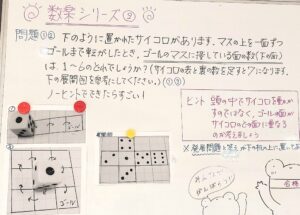 数楽シリーズ③
問題①② 下のように置かれたサイコロがあります。マスの上を一面ずつ
ゴールまで転がしたとき、ゴールのマスに接している面の数(下の面)
は、1～6のどれでしょうか？(サイコロの表と裏の数を足すと7になります。
下の展開図を参考にしてください。)①③
ノーヒントでできたらすごい！
ヒント 頭の中でサイコロを転がす
のではなく、ゴールの面が
サイコロのどの面に重なる
のか考えましょう
①
ゴール
展開図
②
ゴール
※発展問題と答えが下の机の上に置いてあ
みんなで
がんばろう
合格